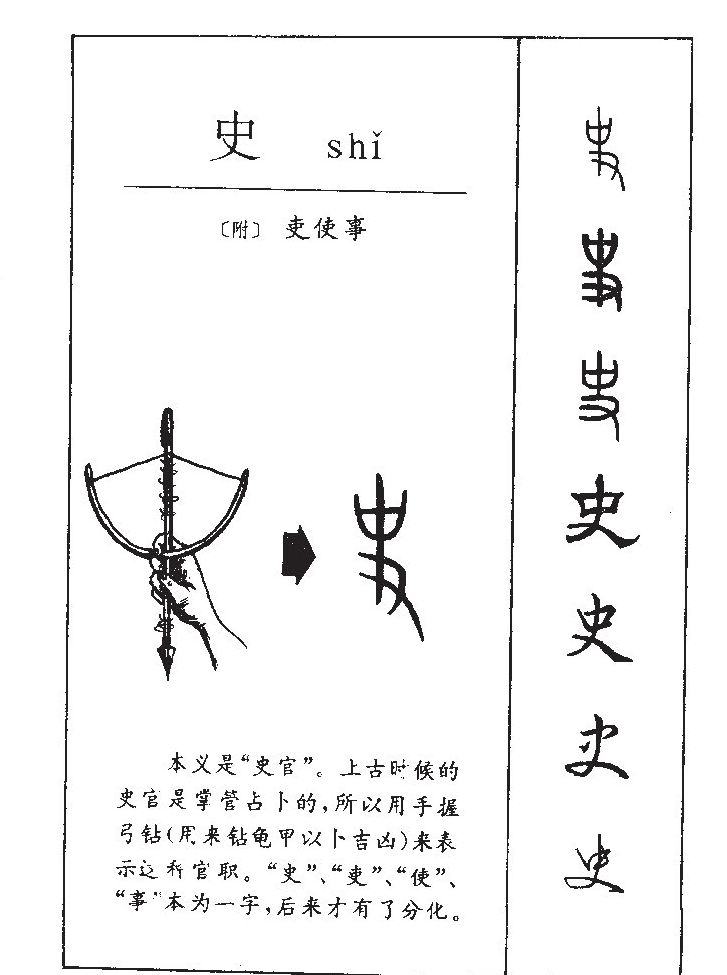 史 shǐ
〔附〕 吏使事
本义是“史官”。上古时候的
史官是掌管占卜的,所以用手握
弓钻(用来钻龟甲以卜吉凶)来表
示这种官职。“史”、“吏”、“使”、
“事”本为一字,后来才有了分化。
史
史
史
史
史
史
史